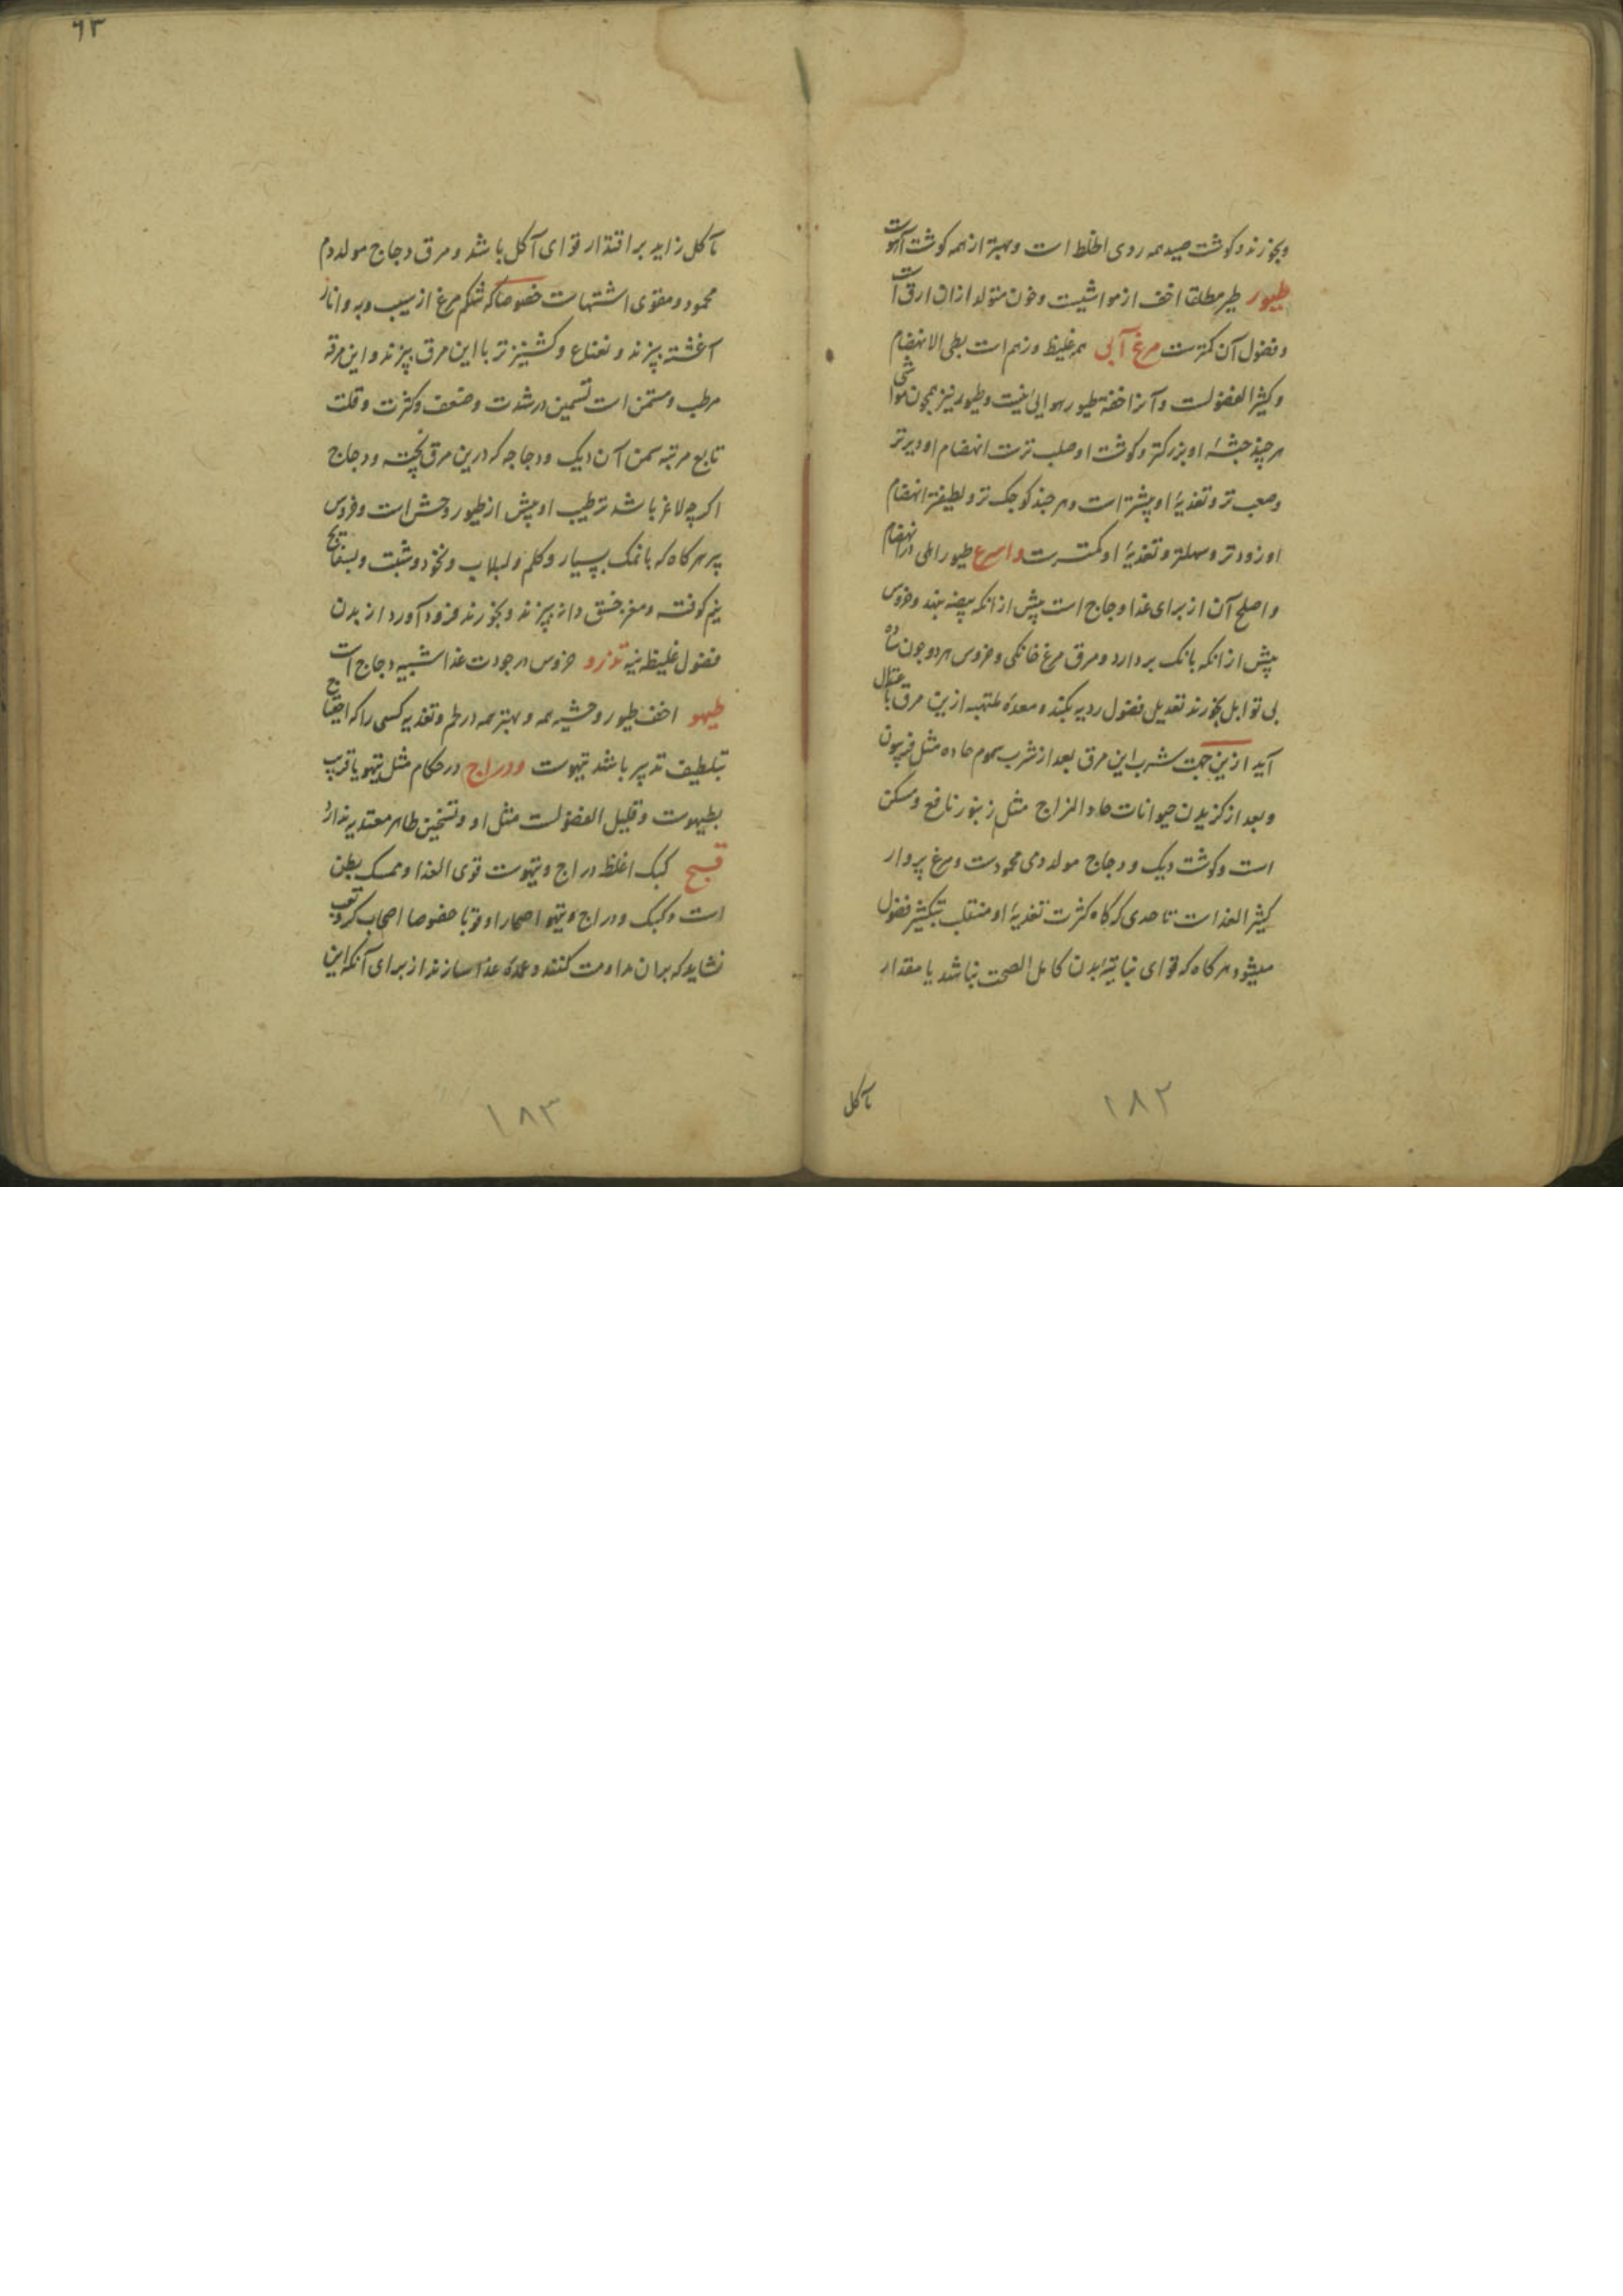 وبخورند و کوشت صید همه ردی الخلط است و بهتر از همه کوشت آهوست
طیور طیر مطلقا اخف از مواشیست و خون متولد ازان ارق است
و فضول آن کمترست مرغ آبی هم غلیظ و زهم است بطی الانهضام
و کثیر الفضولست و آنرا خفة طیور هوایی نیست و طیور نیز همچون مواشی
هر چند جثهٔ او بزرکتر و کوشت او صلب ترست انهضام او دیرتر
و صعب تر و تغذیهٔ او بیشتر است و هر چند کوچک تر و لطیفتر انهضام
او زودتر و سهلتر و تغذیهٔ او کمترست و اسرع طیور اهلی در انهضام
و اصلح آن از برای غذا دجاج است پیش از انکه بیضه نهد و خروس
پیش از انکه بانک بردارد و مرق مرغ خانکی و خروس هر دو چون ساده
بی توابل بخورند تعدیل فضول ردیه بکند و معدهٔ ملتهبه ازین مرق باعتدال
آید ازین جهت شرب این مرق بعد از شرب سموم حاده مثل فربیون
و بعد از کزیدن حیوانات حاد المزاج مثل زنبور نافع و مسکن
است و کوشت دیک و دجاج مولد دمی محمودست و مرغ پروار
کثیر الغذاست تا حدی که کاه کثرت تغذیهٔ او منقلب بتکثیر فضول
میشود هر کاه که قوای نباتیهٔ بدن کامل الصحت نباشد یا مقدار
مآکل
۱۸۲
٦٣
مآکل زاید بر اقتدار قوای آکل باشد و مرق دجاج مولد دم
محمود و مقوی اشتهاست خصوصا که شکم مرغ از سیب و به و انار
آغشته بپزند و نعناع و کشنیز تر با این مرق بپزند و این مرقه
مرطب و مسمن است تسمین در شدت و ضعف و کثرت و قلت
تابع مرتبه سمن آن دیک و دجاجه که درین مرق پخته و دجاج
اکر چه لاغر باشد ترطیب او بیش از طیور وحش است و خروس
پیر هر کاه که با نمک بسیار و کلم و لبلاب و نخود و شبت و بسفایج
نیم کوفته و مغز خسق دانه بپزند و بخورند فرود آورد از بدن
فضول غلیظه نیه تذرو خروس در جودت غذا شبیه دجاج است
طیهو اخف طیور وحشیه همه و بهتر همه در طعم و تغذیه کسی را که احتیاج
بتلطیف تدبیر باشد تیهوست و دراج در احکام مثل تیهو یا قریب
بطیهوست و قلیل الفضولست مثل او و تسخین ظاهر معتد به ندارد
قبج کبک اغلظ دراج و تیهوست قوی الغذا و ممسک بطن
است و کبک و دراج و تیهو اصحا را و قویا خصوصا اصحاب کد و تعب
نشاید که بران مداومت کنند و عمدهٔ غذا سازند از برای آنکه این
۱۸۳